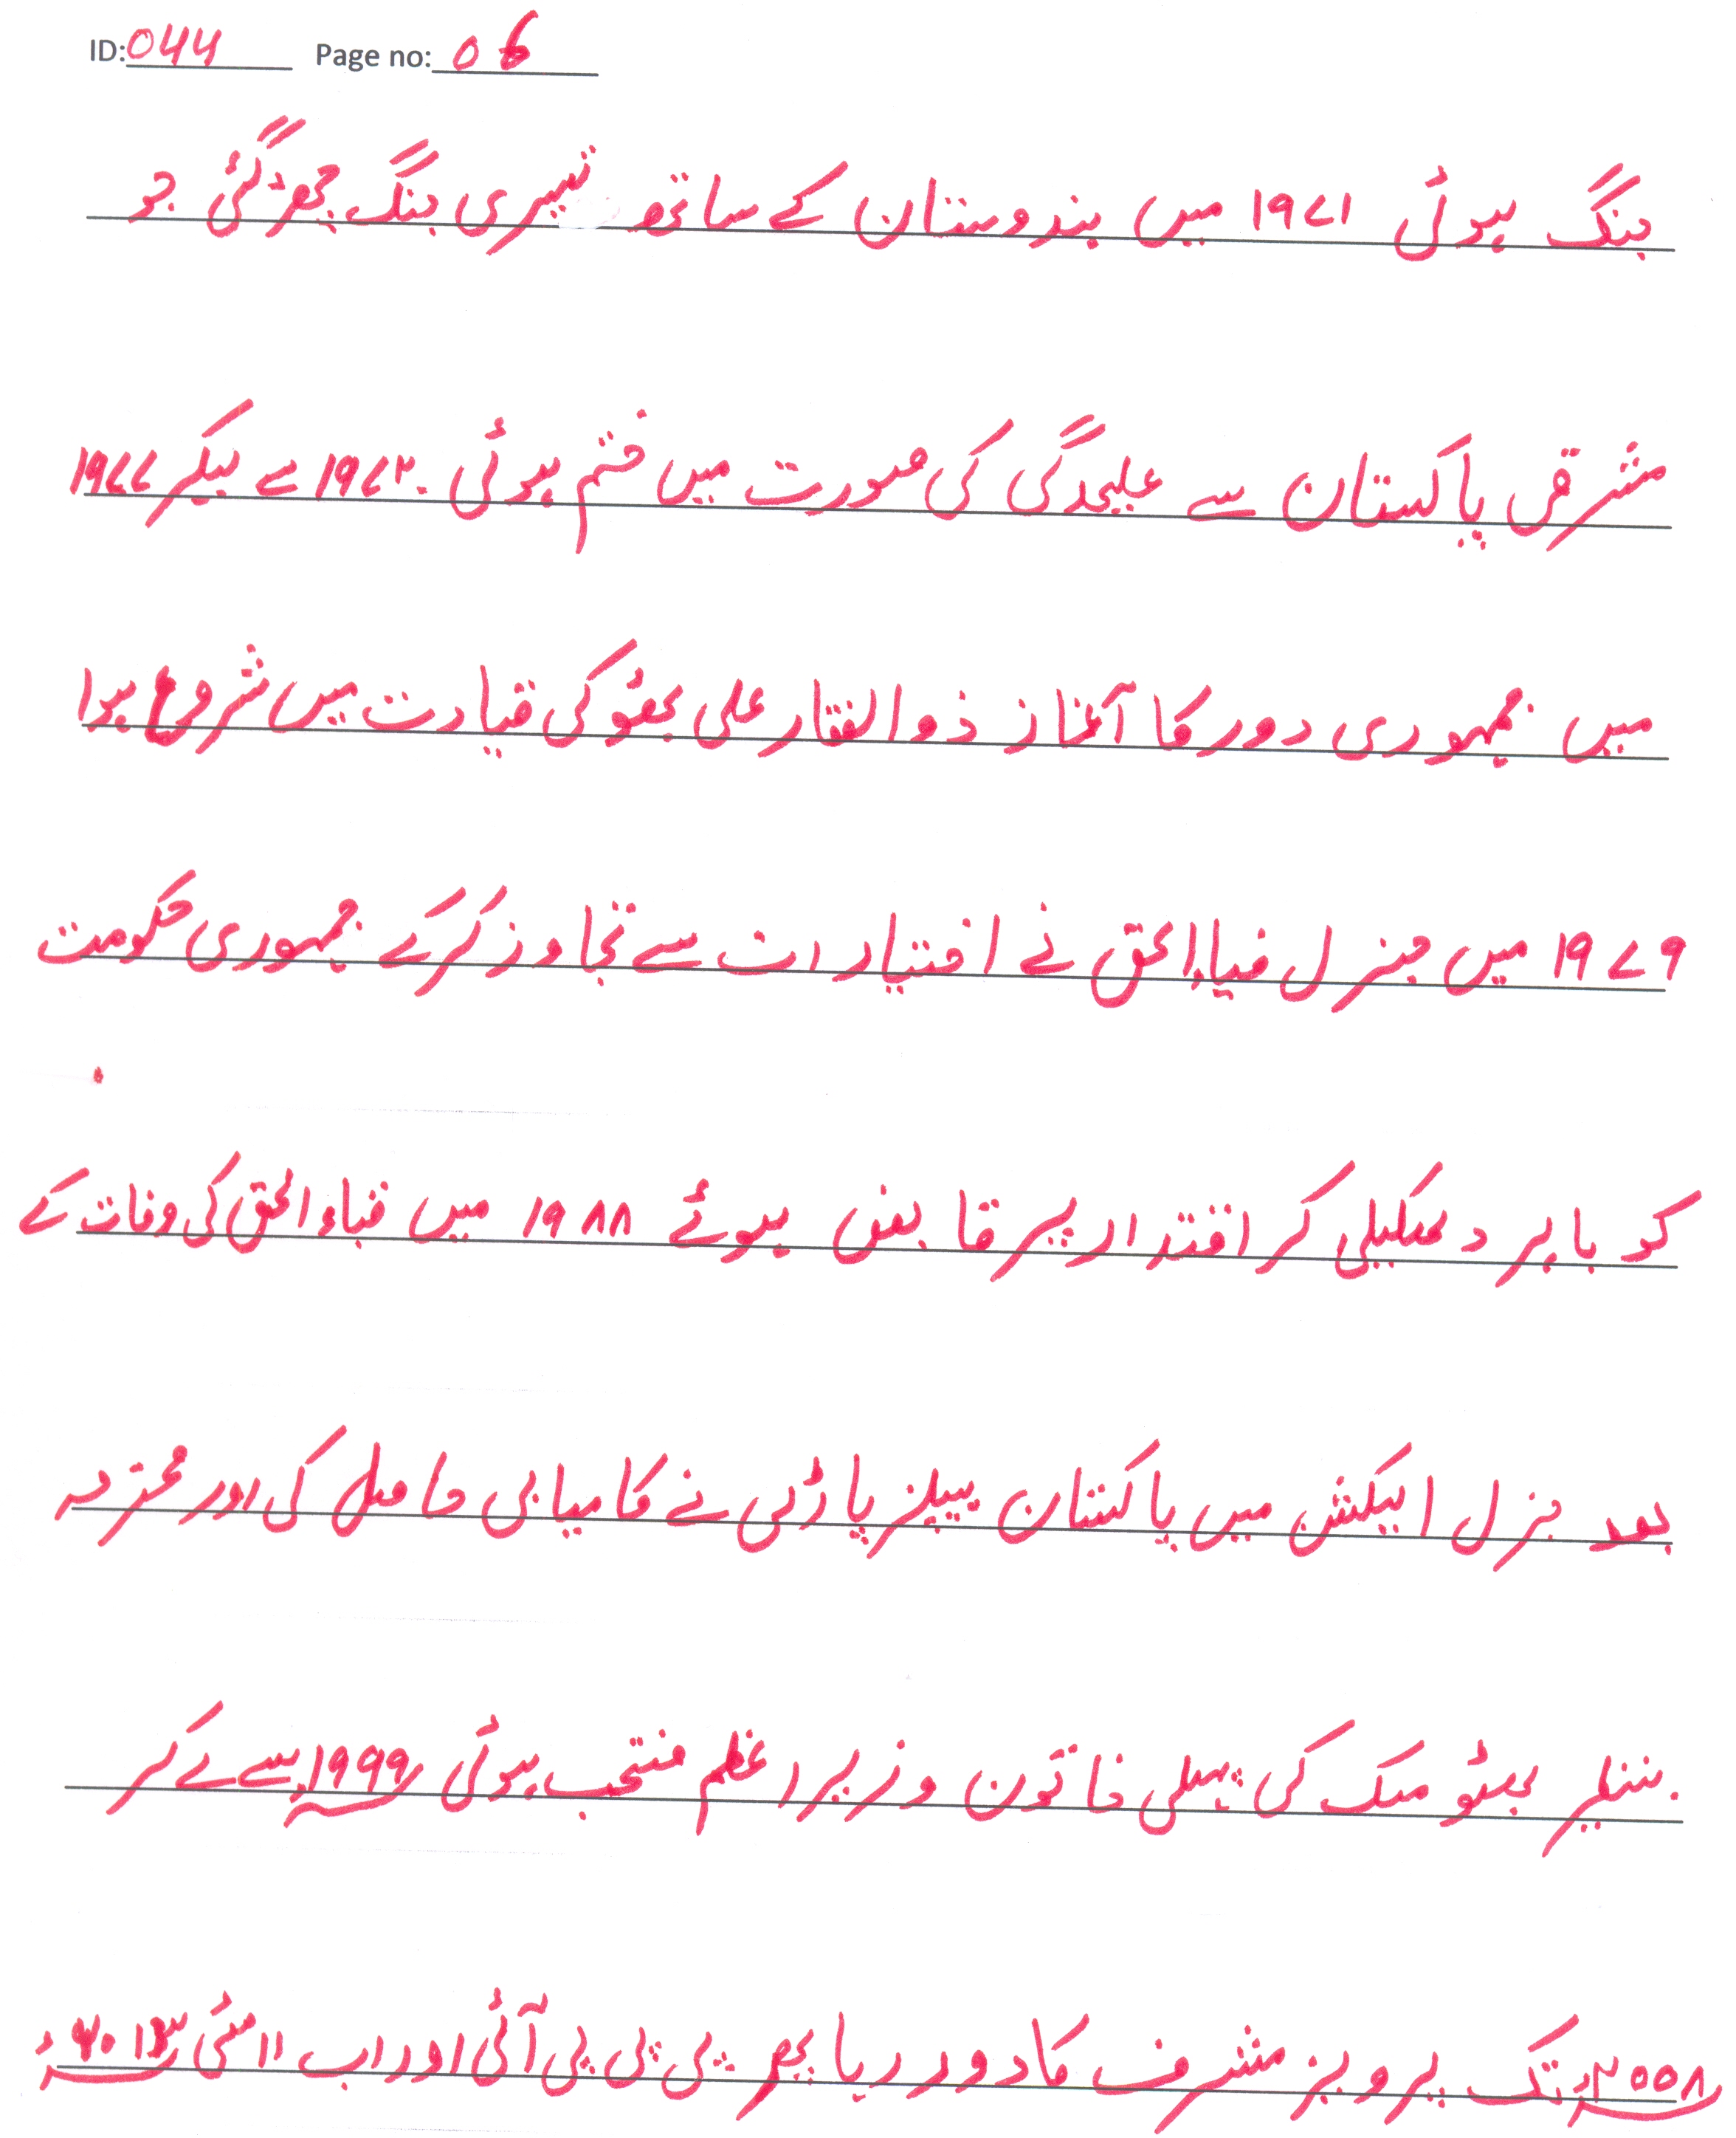 ID: 044 Page no: 06
جنگ ہوئی ۱۹۷۱ میں ہندوستان کے ساتھ تیسری جنگ چھڑ گئی جو
مشرقی پاکستان سے علیحدگی کی صورت میں ختم ہوئی ۔ ۱۹۷۲ سے لیکر ۱۹۷۷
میں جمہوری دور کا آغاز ذوالفقار علی بھٹو کی قیادت میں شروع ہوا
۱۹۷۹ میں جنرل ضیاءالحق نے اختیارات سے تجاوز کرکے جمہوری حکومت
کو باہر دھکیلی کر اقتدار پر قابض ہوئے ۱۹۸۸ میں ضیاءالحق کی وفات کے
بعد جنرل الیکشن میں پاکستان پیپلز پارٹی نے کامیابی حاصل کی اور محترمہ
بینظیر بھٹو ملک کی پہلی خاتون وزیراعظم منتخب ہوئی ۱۹۹۹ء سے لے کر
۲۰۰۸ء تک پرویز مشرف کا دور رہا پھر پی پی پی آئی اور اب ۱۱ مئی ۲۰۱۳ء